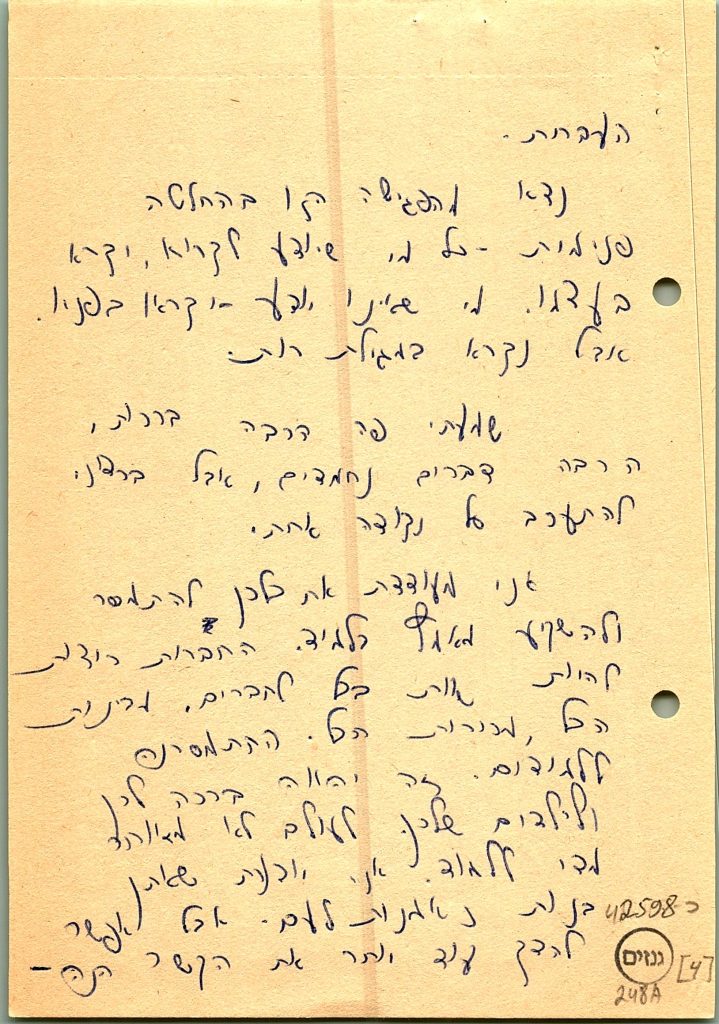 העברות.
נצא מהפגישה הזו בהחלטה
פנימית - כל מי שיודע לקרוא, יקרא
בעצמו. מי שאינו יודע - יקראו בפניו.
אבל נקרא במגילת רות.
שמעתי פה הרבה ברכות,
הרבה דברים נחמדים, אבל ברצוני
להתערב על נקודה אחת.
אני מעודדת את כולכן להתמסר
ולהשקיע מאמץ בלמוד. החברות רוצות
להיות שוות בכל לחברים, מבינות
הכל, מכירות הכל. התמסרנה
ללימודים. זה יהווה ברכה לכן
ולילדים שלכן. לעולם לא מאוחר
מדי ללמוד. אני יודעת שאתן
בנות נאמנות לעם. אבל אפשר
להדק עוד יותר את הקשר הזה -
42598-כ
גנזים
[4]
248A